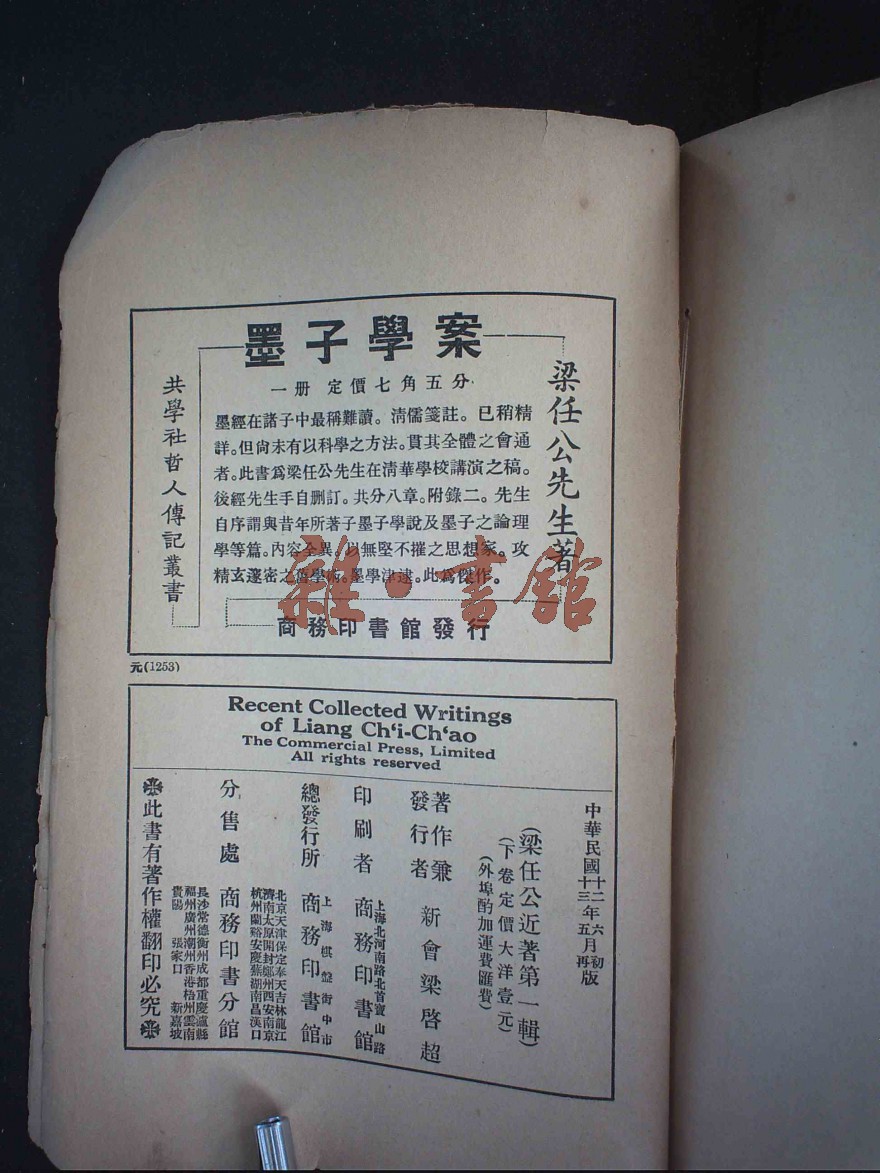 墨子學案
一册 定價七角五分
梁任公先生著
墨經在諸子中最稱難讀。淸儒箋註。已稍精
詳。但尙未有以科學之方法。貫其全體之會通
者。此書爲梁任公先生在淸華學校講演之稿。
後經先生手自删訂。共分八章。附錄二。先生
自序謂與昔年所著子墨子學說及墨子之論理
學等篇。內容全異。以無堅不摧之思想家。攻
精玄邃密之舊學術。墨學津逮。此爲傑作。
共學社哲人傳記叢書
商務印書館發行
雜·書館
元(1253)
Recent Collected Writings
of Liang Ch‘i-Ch‘ao
The Commercial Press, Limited
All rights reserved
中華民國十二年六月初版
中華民國十三年五月再版
(梁任公近著第一輯)
(下卷定價大洋壹元)
(外埠酌加運費匯費)
著作兼發行者 新會梁啓超
印刷者 上海北河南路北首寶山路 商務印書館
總發行所 上海棋盤街中市 商務印書館
分售處 商務印書分館
北京天津保定奉天吉林龍江
濟南太原開封鄭州西安南京
杭州蘭谿安慶蕪湖南昌漢口
長沙常德衡州成都重慶瀘縣
福州廣州潮州香港梧州雲南
貴陽 張家口 新嘉坡
此書有著作權翻印必究